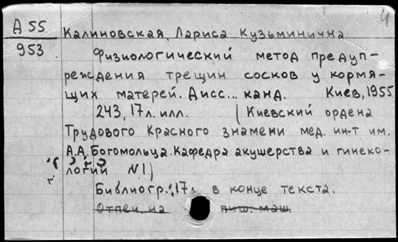 4
А 55 Калиновская, Лариса Кузьминична
953
Физиологический метод предуп-
реждения трещин сосков у кормя-
щих матерей. Дисс... канд. Киев, 1955
243, 17 л. илл. (Киевский ордена
Трудового Красного знамени мед. ин-т им.
А.А. Богомольца. Кафедра акушерства и гинеко-
логии N 1)
Библиогр.: 17 л. в конце текста.
Отпеч. на пиш. маш.